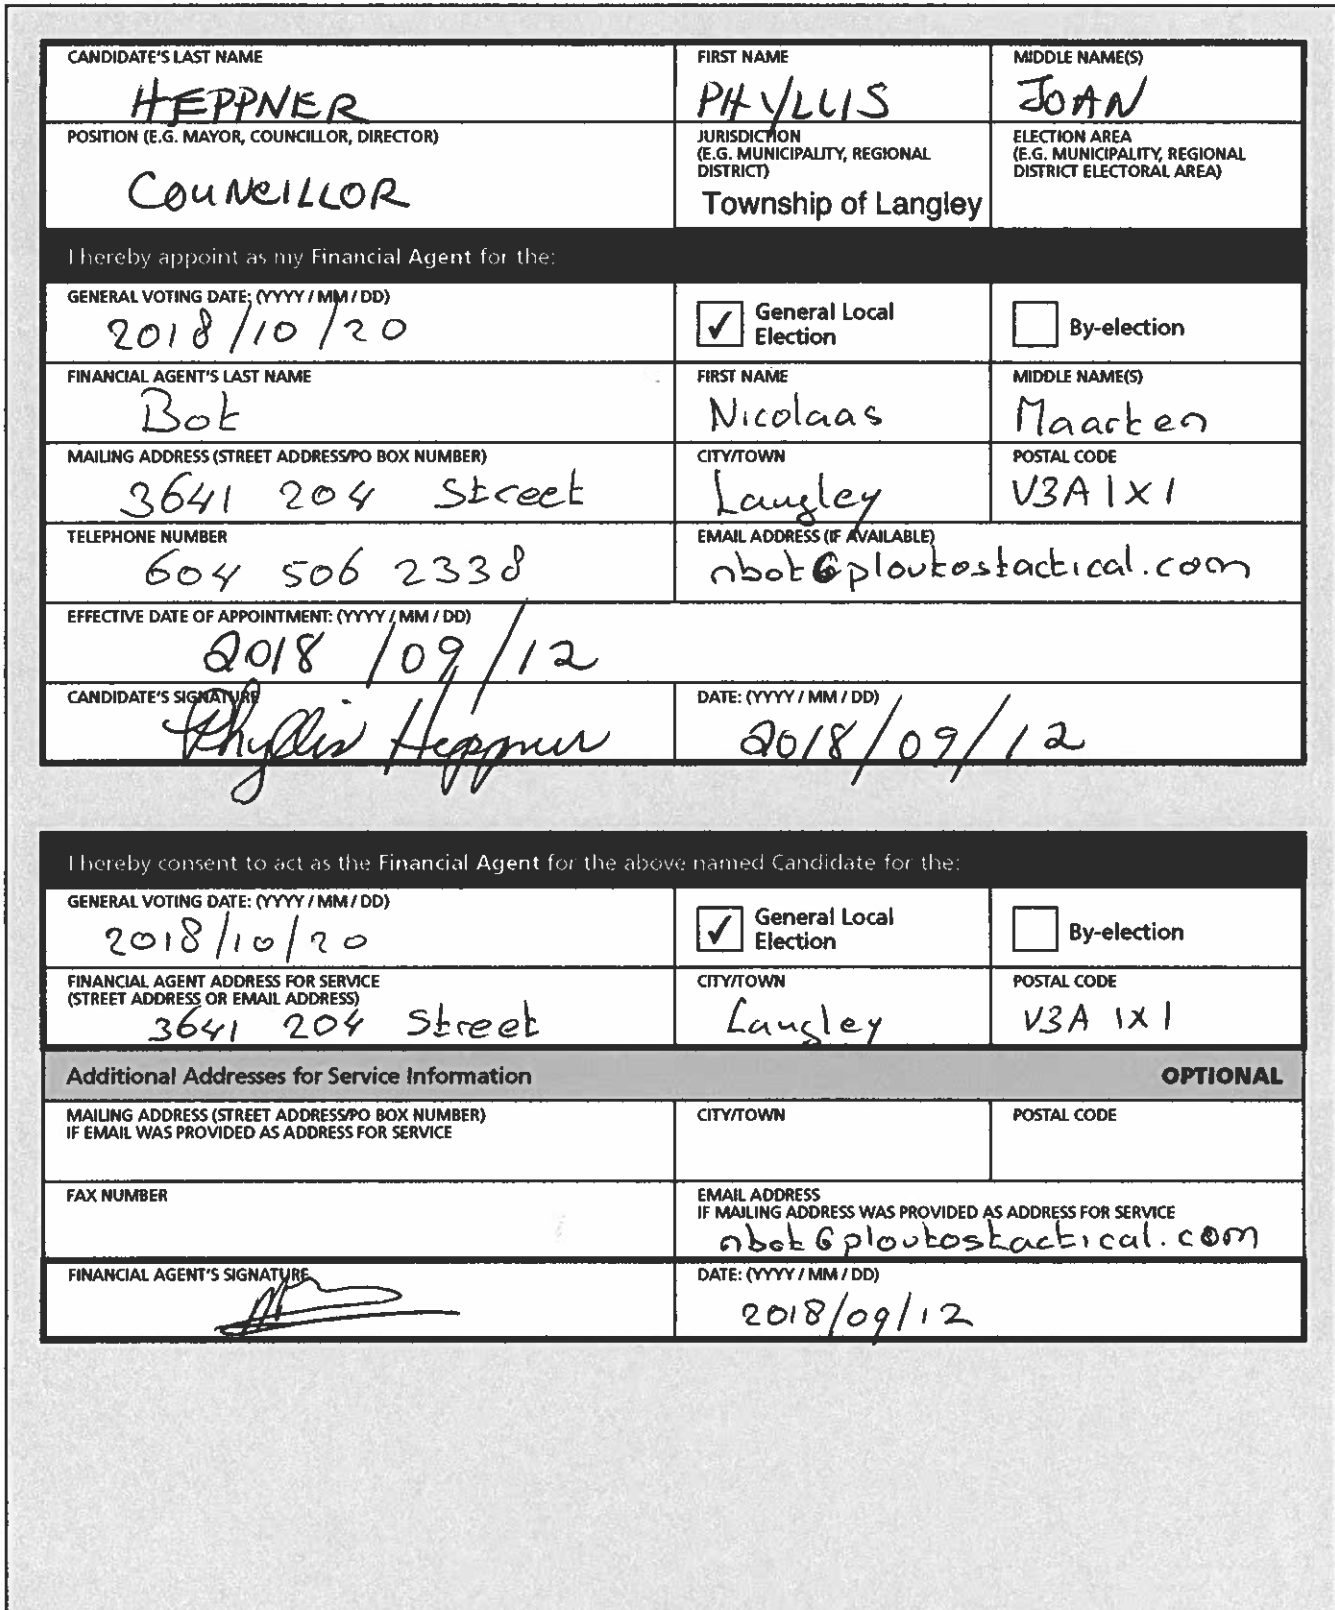 CANDIDATE'S LAST NAME FIRST NAME MIDDLE NAME(S)
HEPPNER PHYLLIS JOAN
POSITION (E.G. MAYOR, COUNCILLOR, DIRECTOR) JURISDICTION (E.G. MUNICIPALITY, REGIONAL DISTRICT) ELECTION AREA (E.G. MUNICIPALITY, REGIONAL DISTRICT ELECTORAL AREA)
COUNCILLOR Township of Langley
I hereby appoint as my Financial Agent for the:
GENERAL VOTING DATE: (YYYY / MM / DD)
2018/10/20 ✓ General Local Election By-election
FINANCIAL AGENT'S LAST NAME FIRST NAME MIDDLE NAME(S)
Bot Nicolaas Maarten
MAILING ADDRESS (STREET ADDRESS/PO BOX NUMBER) CITY/TOWN POSTAL CODE
3641 204 Street Langley V3A 1X1
TELEPHONE NUMBER EMAIL ADDRESS (IF AVAILABLE)
604 506 2338 nbot@ploutostactical.com
EFFECTIVE DATE OF APPOINTMENT: (YYYY / MM / DD)
2018/09/12
CANDIDATE'S SIGNATURE DATE: (YYYY / MM / DD)
Phyllis Heppner 2018/09/12
I hereby consent to act as the Financial Agent for the above named Candidate for the:
GENERAL VOTING DATE: (YYYY / MM / DD)
2018/10/20 ✓ General Local Election By-election
FINANCIAL AGENT ADDRESS FOR SERVICE (STREET ADDRESS OR EMAIL ADDRESS) CITY/TOWN POSTAL CODE
3641 204 Street Langley V3A 1X1
Additional Addresses for Service Information OPTIONAL
MAILING ADDRESS (STREET ADDRESS/PO BOX NUMBER) IF EMAIL WAS PROVIDED AS ADDRESS FOR SERVICE CITY/TOWN POSTAL CODE
FAX NUMBER EMAIL ADDRESS IF MAILING ADDRESS WAS PROVIDED AS ADDRESS FOR SERVICE
nbot@ploutostactical.com
FINANCIAL AGENT'S SIGNATURE DATE: (YYYY / MM / DD)
2018/09/12